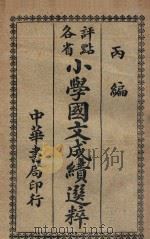 丙編
評點
各省
小學國文成績選粹
中華書局印行